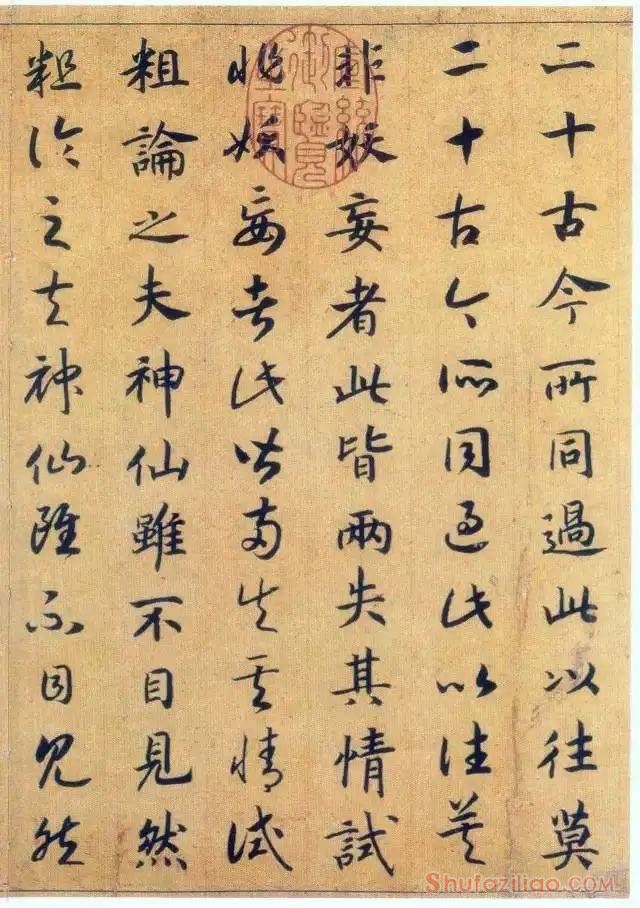 二十古今所同過此以往莫
二十古今所同過此以往莫
非妖妄者此皆兩失其情試
非妖妄者此皆兩失其情試
粗論之夫神仙雖不目見然
粗論之夫神仙雖不目見然
Shufaziliao.com